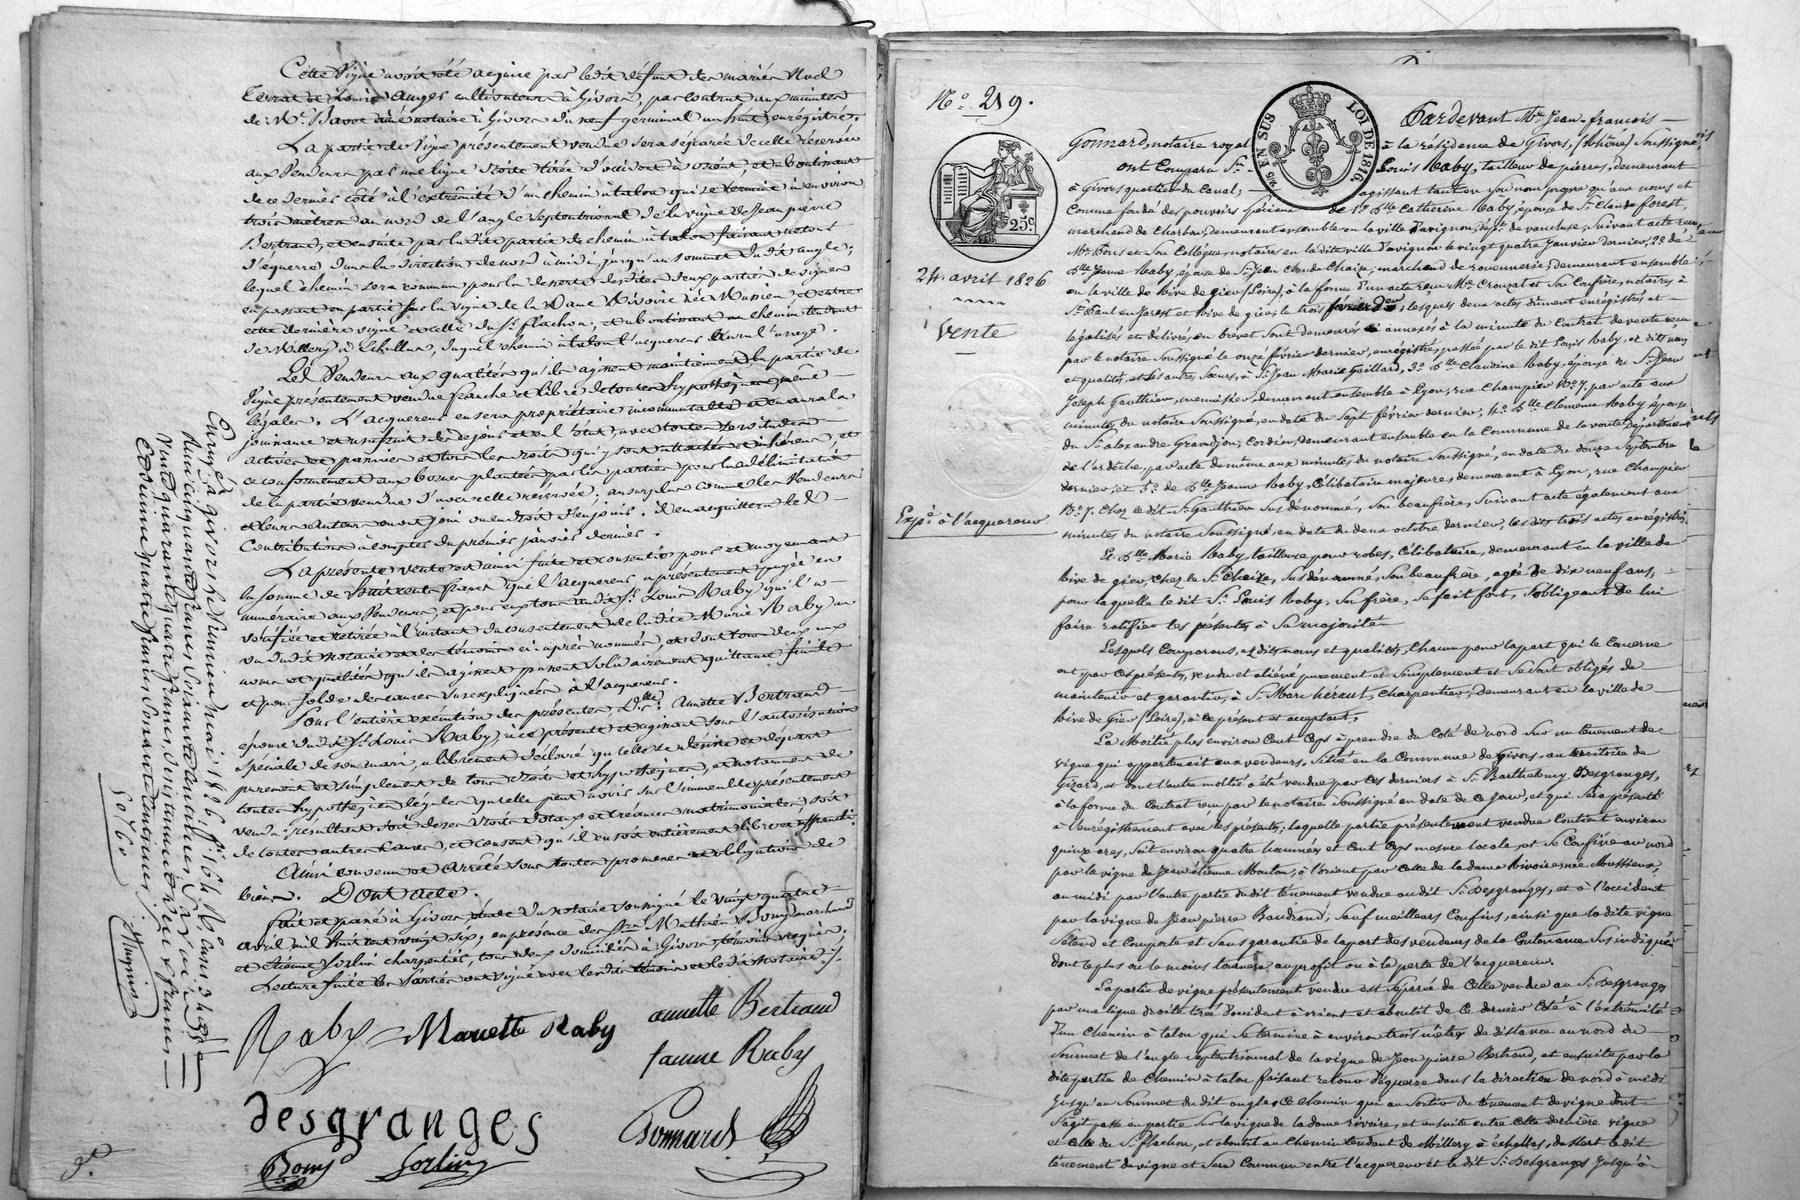 Cette Vigne avoit été acquise par ledit défunt des mariés Noel
Terrat et Louise Auger cultivateurs à Givors, par contrat aux minutes
de Me. Bavoz ainé notaire à Givors du neuf germinal an huit, enregistré.
La partie de Vigne présentement vendue sera séparée de celle réservée
aux Vendeurs par une ligne droite tirée d'occident à orient, et aboutissant
de ce dernier côté à l'extrémité d'un chemin à talon qui se termine à environ
trois mètres au nord de l'angle Septentrional de la vigne de Jean pierre
Bertrand, et ensuite par ladite partie de chemin à talon faisant retour
d'équerre dans la direction de nord à midi jusqu'au sommet dudit angle;
lequel chemin sera commun pour la desserte desdites deux parties de vignes
en passant en partie sur la vigne de la Dame Rivoire née Mussieu, et entre
cette dernière vigne et celle du Sr. flachon, et aboutissant au chemin tendant
de Millery à Echallas, duquel chemin à talon l'acquereur aura l'usage.
Les Vendeurs aux qualités qu'ils agissent maintiennent la partie de
Vigne présentement vendue franche et libre de toutes hypothèques même
légales. L'acquereur en sera propriétaire incommutable et en aura la
jouissance et usufruit dès ce jour en l'état, avec toutes servitudes
actives et passives et tous les droits qui y sont attachés et inhérens, et
ce conformément aux bornes plantées par les parties pour la délimitation
de la partie vendue d'avec celle réservée; au surplus comme les Vendeurs
et leurs auteurs en ont joui ou eu droit d'en jouir. il en acquittera les
Contributions à compter du premier janvier dernier.
La présente vente est ainsi faite et consentie pour et moyennant
la somme de huit cents francs que l'acquereur a présentement payée en
numéraire aux Vendeurs, et pour eux tous audit Sr. Louis Raby qui l'a
vérifiée et retirée à l'instant du consentement de ladite Marie Raby au
vu dudit notaire et des témoins ci-après nommés, et dont tous deux aux
noms et qualités qu'ils agissent passent solidairement quittance finale
et pour solde des causes sus expliquées à l'acquereur.
Pour l'entière exécution des présentes De. Annette Bertrand
épouse dudit Sr. Louis Raby, ici présente et agissant sous l'autorisation
spéciale de son mari, a librement déclaré qu'elle se désiste et départ
purement et simplement de tous droits et hypothèques, et notamment de
toutes hypothèques légales qu'elle peut avoir sur l'immeuble présentement
vendu, résultant soit de ses droits dotaux et créances matrimoniales, soit
de toutes autres causes, et consent qu'il en soit entièrement libre et affranchi.
Ainsi convenu et arrêté sous toutes promesses et obligations de
biens. Dont acte.
Fait et passé à Givors, étude du notaire soussigné le vingt quatre
avril mil huit cent vingt six; en présence des Srs. Mathieu Bony marchand
et Etienne Sorlin charpentier, tous deux domiciliés à Givors, témoins requis;
Lecture faite les Parties ont signé avec lesdits témoins et ledit notaire ./.
Raby Mariette Raby annette Bertrand
Jeanne Raby
desgranges
Bony Sorlin Gonnard
Enregé. à givors le
50,60
No. 219.
24. avril 1826
Vente
Expé. à l'acquereur
25c
5/10 EN SUS
LOI DE 1816.
Pardevant Me. Jean-francois
Gonnard, notaire royal à la résidence de Givors, (Rhône) Soussigné
ont Comparu Sr. Louis Raby, tailleur de pierres, demeurant
à Givors quartier du Canal; agissant tant en son nom propre qu'aux noms et
Comme fondé des pouvoirs spéciaux de 1°. Dlle. Catherine Raby, épouse de Sr. Claude forest,
marchand de Charbon, demeurant ensemble en la ville d'avignon, dépt. de vaucluse, suivant acte reçu
Me. Pons et son Collègue, notaires en la dite ville d'avignon le vingt quatre Janvier dernier, 2°. de
Dlle. Jeanne Raby, épouse de Sr. Jean Claude Chaize, marchand de rouennerie, demeurant ensemble
en la ville de Rive de gier (Loire), à la forme d'un acte reçu Me. Crouzat et son Confrère, notaires à
St. Paul en Jarest et Rive de gier, le trois février dernier, lesquels deux actes dûment enregistrés et
légalisés et délivrés en brevet sont demeurés annexés à la minute du Contrat de vente reçu
par le notaire Soussigné le onze février dernier, enregistré, passée par le dit Louis Raby, ez dits noms
et qualités, et les autres Sœurs, à Sr. Jean Marie Gaillard, 3°. Dlle. Claudine Raby, épouse de Sr. Jean
Joseph Gauthier, menuisier, demeurant ensemble à Lyon, rue Champier No. 7. par acte aux
minutes du notaire Soussigné, en date du Sept février dernier, 4°. Dlle. Clémence Raby, épouse
du Sr. alexandre Grandjon, Cordier, demeurant ensemble en la Commune de la voulte, département
de l'ardèche, par acte de même aux minutes du notaire Soussigné, en date du douze Septembre
dernier, et 5°. de Dlle. Jeanne Raby, Célibataire majeure, demeurant à Lyon, rue Champier
No. 7. chez le dit Sr. Gauthier Sus dénommé, Son beaufrère, Suivant acte également aux
minutes du notaire Soussigné, en date du deux octobre dernier, les dits trois actes enregistrés.
Et Dlle. Marie Raby, tailleuse pour robes, Célibataire, demeurant en la ville de
Rive de gier, chez le Sr. Chaize, Sus dénommé, Son beaufrère, agée de dix neuf ans,
pour laquelle le dit Sr. Louis Raby, Son frère, Se fait fort, S'obligeant de lui
faire ratifier les présentes à Sa majorité.
Lesquels Comparans, ez dits noms et qualités, Chacun pour la part qui le Concerne
ont par ces présentes, vendu et aliéné purement et Simplement et Se Sont obligés de
maintenir et garantir, à Sr. Marc héraut, Charpentier, demeurant en la ville de
Rive de Gier (Loire), à ce présent et acceptant,
La Moitié plus environ Cent Ceps à prendre du Coté de nord Sur un tènement de
vigne qui appartenait aux vendeurs, Situé en la Commune de givors, au territoire de
Gizard, et dont l'autre moitié a été vendue par ces derniers à Sr. Barthelemy Desgranges,
à la forme du Contrat reçu par le notaire Soussigné en date de Ce Jour, et qui Sera présenté
à l'enregistrement avec les présentes; laquelle partie présentement vendue Contient environ
quinze ares, Soit environ quatre hommées et Cent Ceps mesure locale, et Se Confine au nord
par la vigne de Jean étienne Mouton, à l'orient par Celle de la dame Rivoire née Mussieux,
au midi par l'autre partie du dit tènement vendue au dit Sr. Desgranges, et à l'occident
par la vigne de Jean pierre Baudrand, Sauf meilleurs Confins, ainsi que la dite vigne
S'étend et Comporte et Sans garantie de la part des vendeurs de la Contenance Sus indiquée
dont le plus ou le moins tournera au profit ou à la perte de l'acquereur.
La partie de vigne présentement vendue est Séparée de Celle vendue au Sr. Desgranges
par une ligne droite tirée d'occident à orient et aboutit de Ce dernier Coté à l'extrémité
d'un chemin à talon qui Se termine à environ trois mètres de distance au nord du
Sommet de l'angle Septentrional de la vigne de Jean pierre Bertrand, et ensuite par la
dite partie de Chemin à talon faisant retour d'équerre dans la direction de nord à midi
Jusqu'au Sommet du dit angle, ce chemin qui au Sortir du tènement de vigne dont
S'agit passe en partie Sur la vigne de la dame Rivoire, et ensuite entre Cette dernière vigne
et Celle du Sr. Flachon, et aboutit au Chemin tendant de Millery à échallas, dessert le dit
tènement de vigne et Sera Commun entre l'acquereur et le dit Sr. Desgranges Jusqu'à